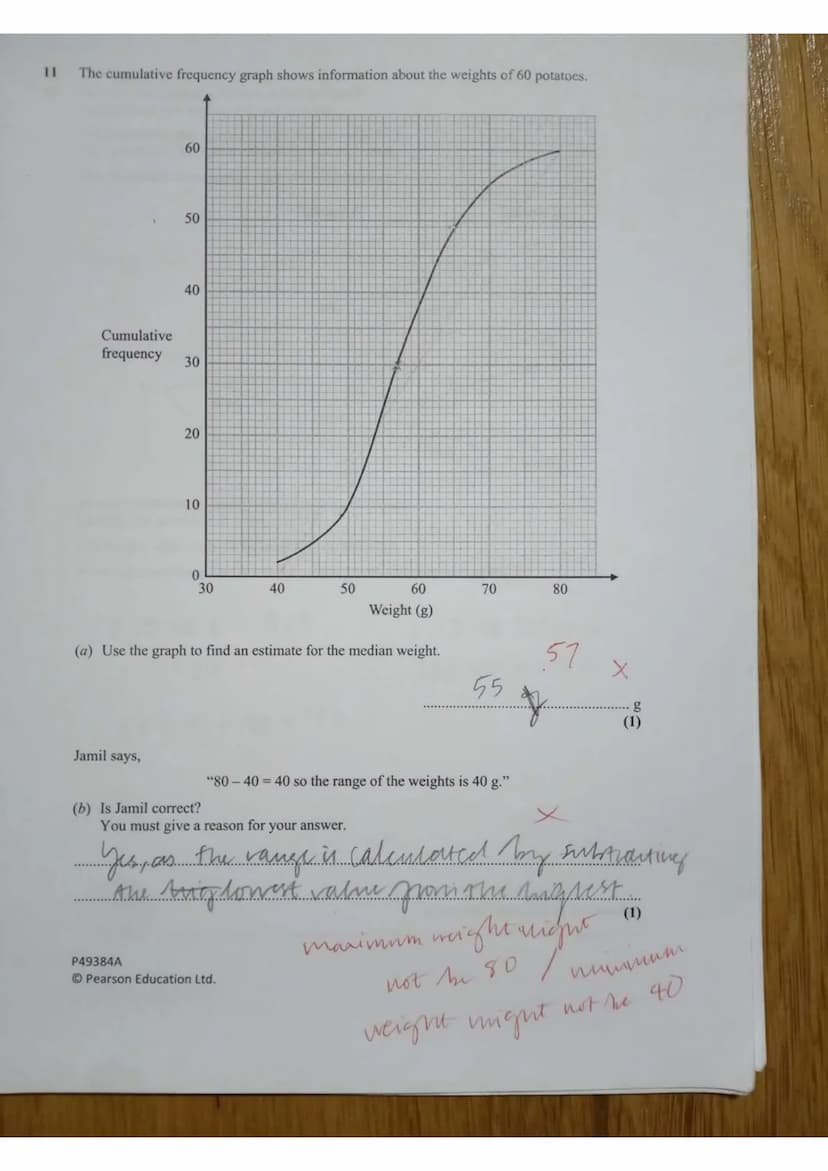 11 The cumulative frequency graph shows information about the weights of 60 potatoes.
60
50
40
Cumulative
frequency
30
20
10
0
30 40 50 60 70 80
Weight (g)
(a) Use the graph to find an estimate for the median weight.
57 x
55 g
g
(1)
Jamil says,
“80 – 40 = 40 so the range of the weights is 40 g.”
(b) Is Jamil correct?
You must give a reason for your answer.
x
Yes, as the range is calculated by subtracting
the lowest value from the highest.
(1)
maximum weight might
not be 80 / minimum
weight might not be 40
P49384A
© Pearson Education Ltd.